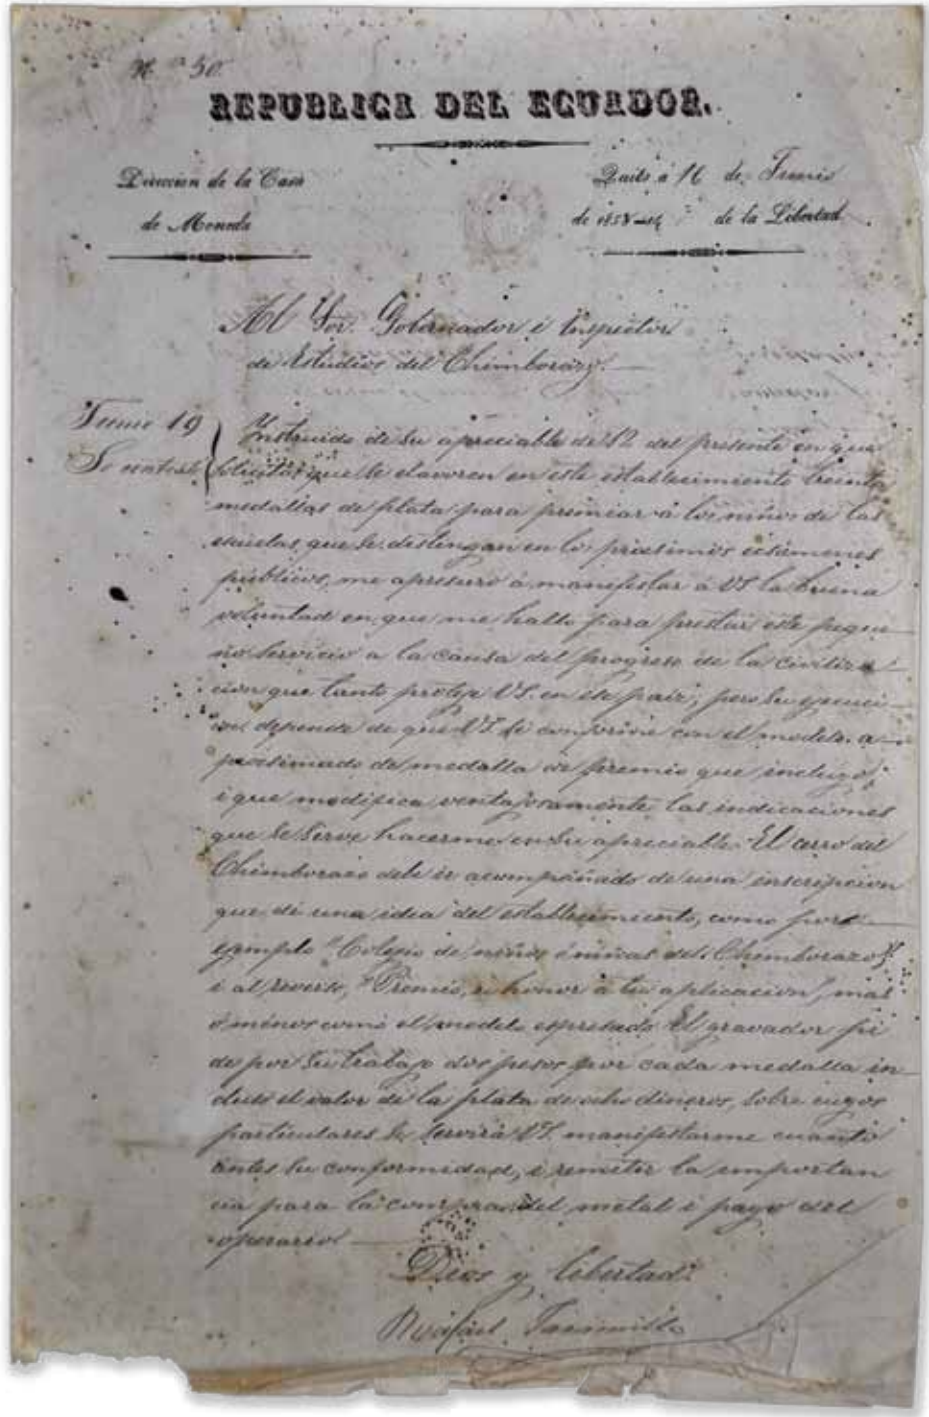 N.º 50.
REPUBLICA DEL ECUADOR.
Direccion de la Casa
de Moneda
Quito á 16 de Junio
de 1858 14 de la Libertad
Al Sor. Gobernador é Inspector
de Estudios del Chimborazo.
Junio 19
Se contestó
Instruido de su apreciable de 12 del presente en que
solicita que se elavoren en este establecimiento treinta
medallas de plata para premiar á los niños de las
escuelas que se distingan en los procsimos ecsámenes
públicos, me apresuro á manifestar á VS la buena
voluntad en que me hallo para prestar este peque
ño servicio a la causa del progreso de la civiliza
cion que tanto proteje VS. en ese pais; pero su ejecuci
on depende de que VS se conforme con el modelo a
procsimado de medalla de premio que incluyo,
i que modifica ventajosamente las indicaciones
que se sirve hacerme en su apreciable. El cerro del
Chimborazo debe ir acompañado de una inscripcion
que dé una idea del establecimiento, como por
ejemplo "Colegio de niños ó niñas del Chimborazo"
i al reverso, "Premio, ú honor á la aplicacion, mas
ó menos como el modelo espresado. El gravador pi
de por su trabajo dos pesos por cada medalla in
cluso el valor de la plata de ocho dineros, sobre cuyos
particulares se servirá VS. manifestarme cuanto
antes su conformidad, i remitir la importan
cia para la compra del metal i pago del
operario
Dios y libertad.
Rafael Jaramillo